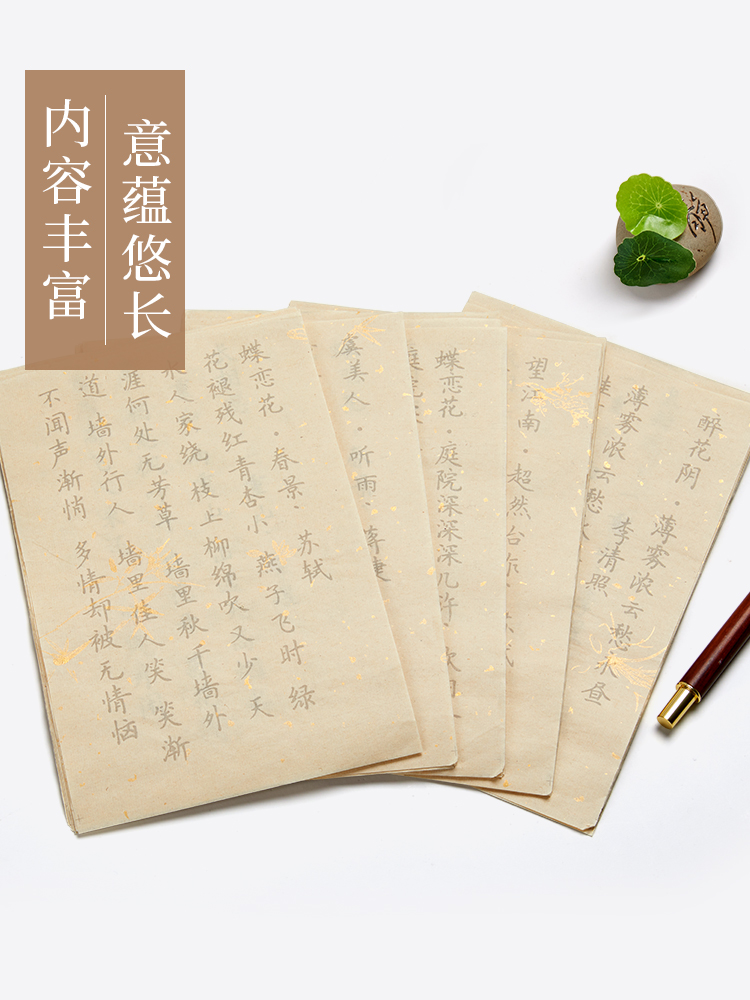 内容丰富
意蕴悠长
蝶恋花·春景·苏轼
花褪残红青杏小 燕子飞时 绿
人家绕 枝上柳绵吹又少 天
涯何处无芳草 墙里秋千墙外
道 墙外行人 墙里佳人笑 笑渐
不闻声渐悄 多情却被无情恼
虞美人·听雨·蒋捷
蝶恋花·庭院深深深几许·
望江南·超然台作·
醉花阴·薄雾浓云愁永昼
李清照
薄雾浓云愁